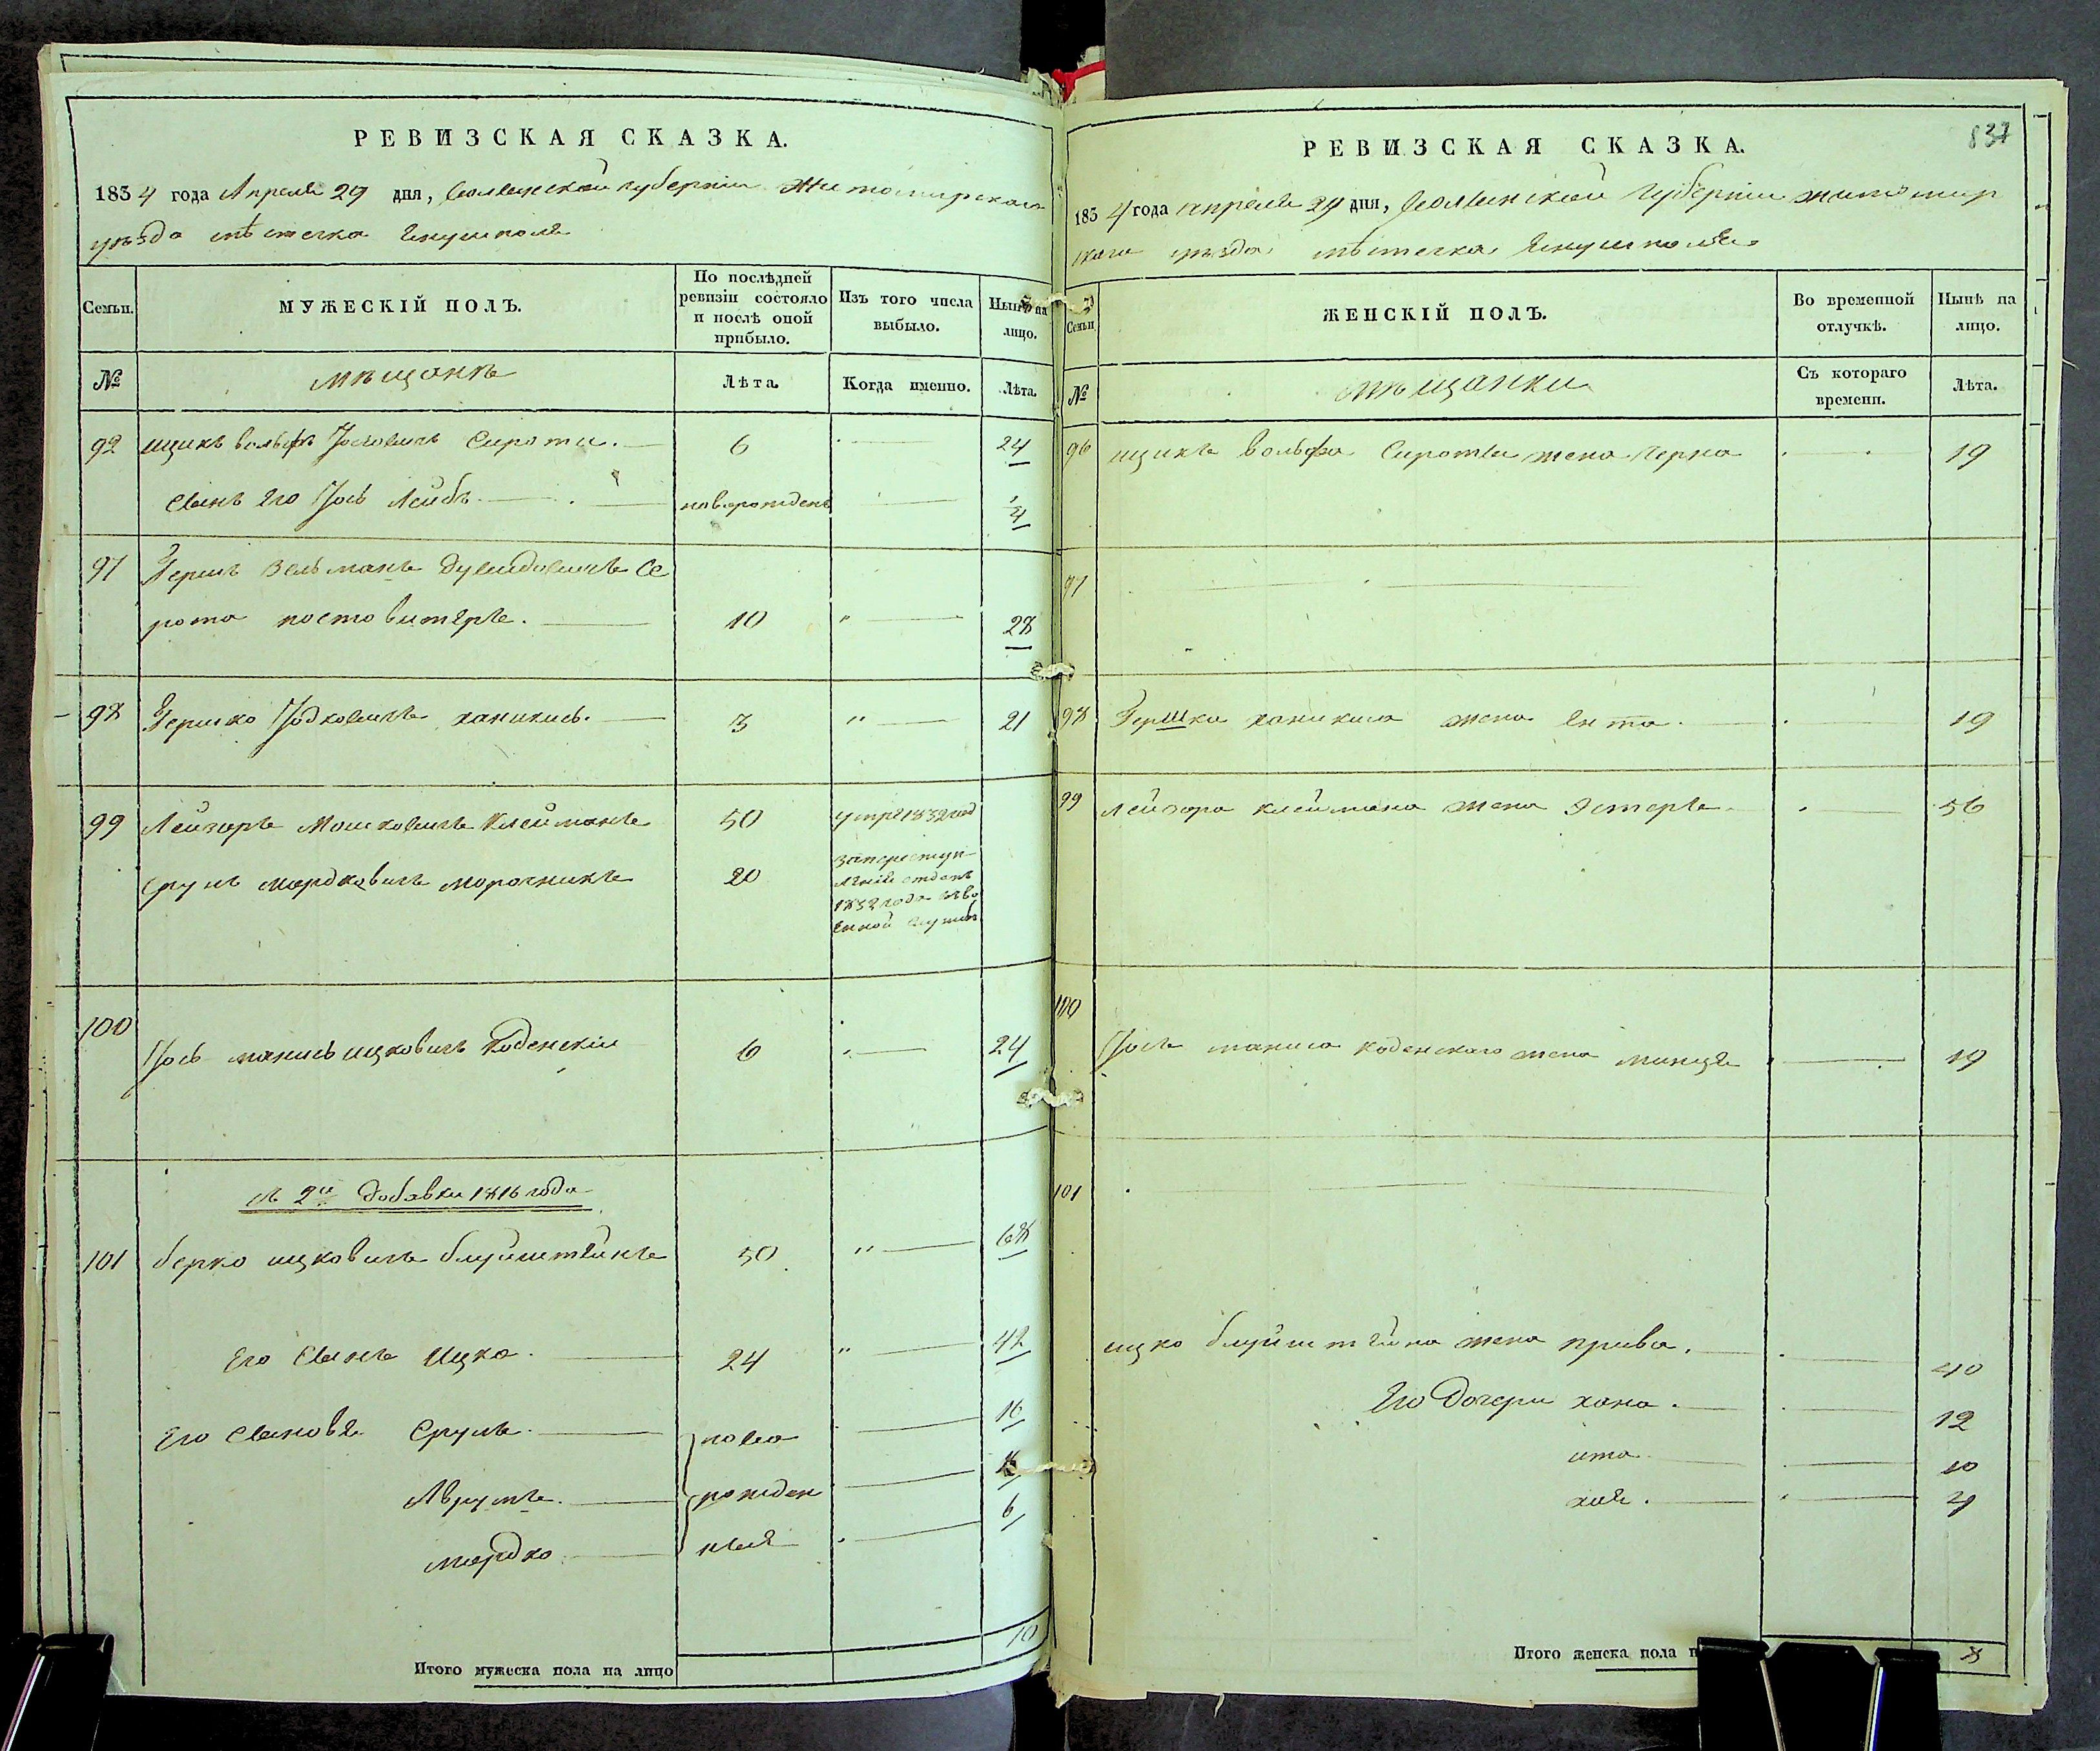 РЕВИЗСКАЯ СКАЗКА.
1834 года Апреля 29 дня, Волынской губерніи Житомирскаго
уѣзда мѣстечка Янушполя
Семьи.
МУЖЕСКІЙ ПОЛЪ.
По послѣдней ревизіи состояло и послѣ оной прибыло.
Изъ того числа выбыло.
Нынѣ на лицо.
№
мѣщанъ
Лѣта.
Когда именно.
Лѣта.
ицикъ вольфъ Іосевичъ Сирота. 6 24
Сынъ Его Іось Лейбъ новорожденъ
97 Гершъ Зельманъ Дувидовичъ Се
рота 10 28
98 Гершко Іодковичъ 3 21
99 Лейзоръ Мошковичъ Клейманъ 50 умре 1832 год
Сруль Мордковичъ 20
1832 года
100
Іось манись ицковичъ Коденскій 6 24
2й добавки 1816 года
101 берко ицковичъ блуйштейнъ 50 68
Его Сынъ Ицко. 24 42
Его Сыновя Сруль. ново 16
Аврумъ. рожден
мордко ныя 6
Итого мужеска пола на лицо 10
837
РЕВИЗСКАЯ СКАЗКА.
1834 года апреля 29 дня, Волынской Губерніи житомир
скаго уѣзда мѣстечка Янушполя
Семьи
ЖЕНСКІЙ ПОЛЪ.
Во временной отлучкѣ.
Нынѣ на лицо.
№
мѣщанки
Съ котораго времени.
Лѣта.
96 ицикъ вольфа Сироты жена Черна 19
97
98 Гершка жена Ента. 19
99 Лейзора клеймана жена Эстеръ 56
100
Іось маниса коденскаго жена минця 19
101
ицко блуйштейна жена 40
Его дочери хана. 12
ита 10
хая. 4
Итого женска пола 8